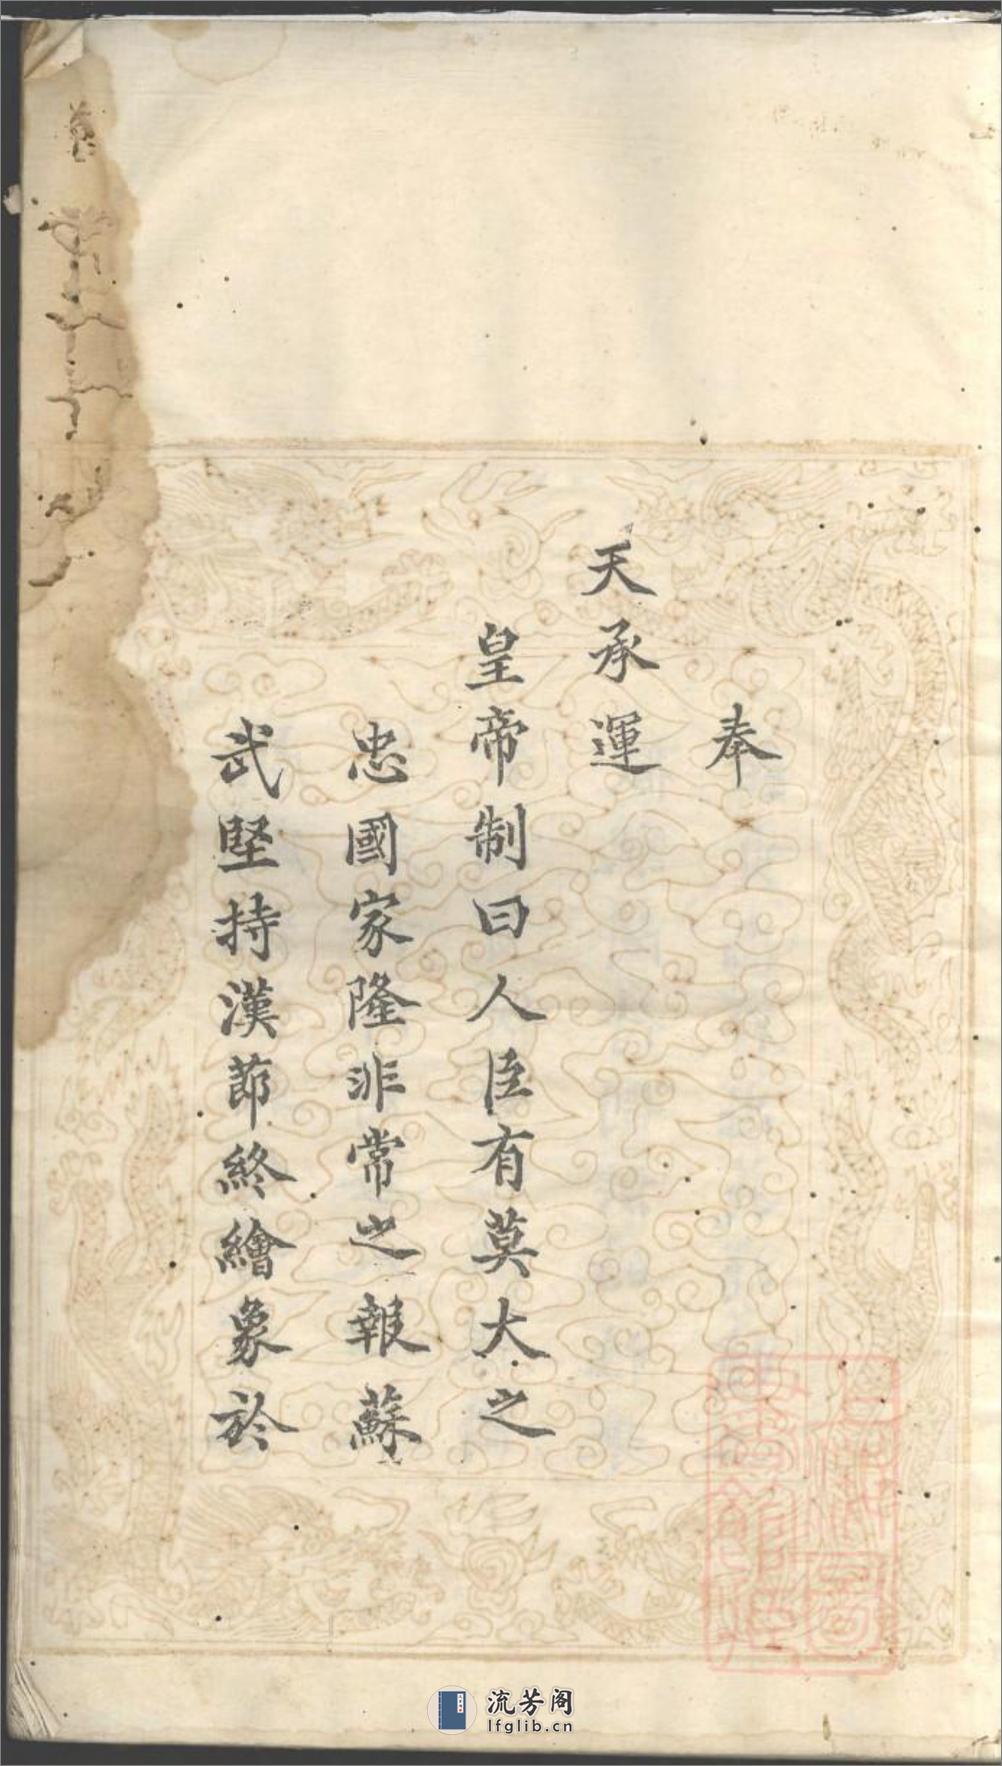 奉
天承運
皇帝制曰人臣有莫大之
忠國家隆非常之報蘇
武堅持漢節終繪象於
流芳阁
lfglib.cn